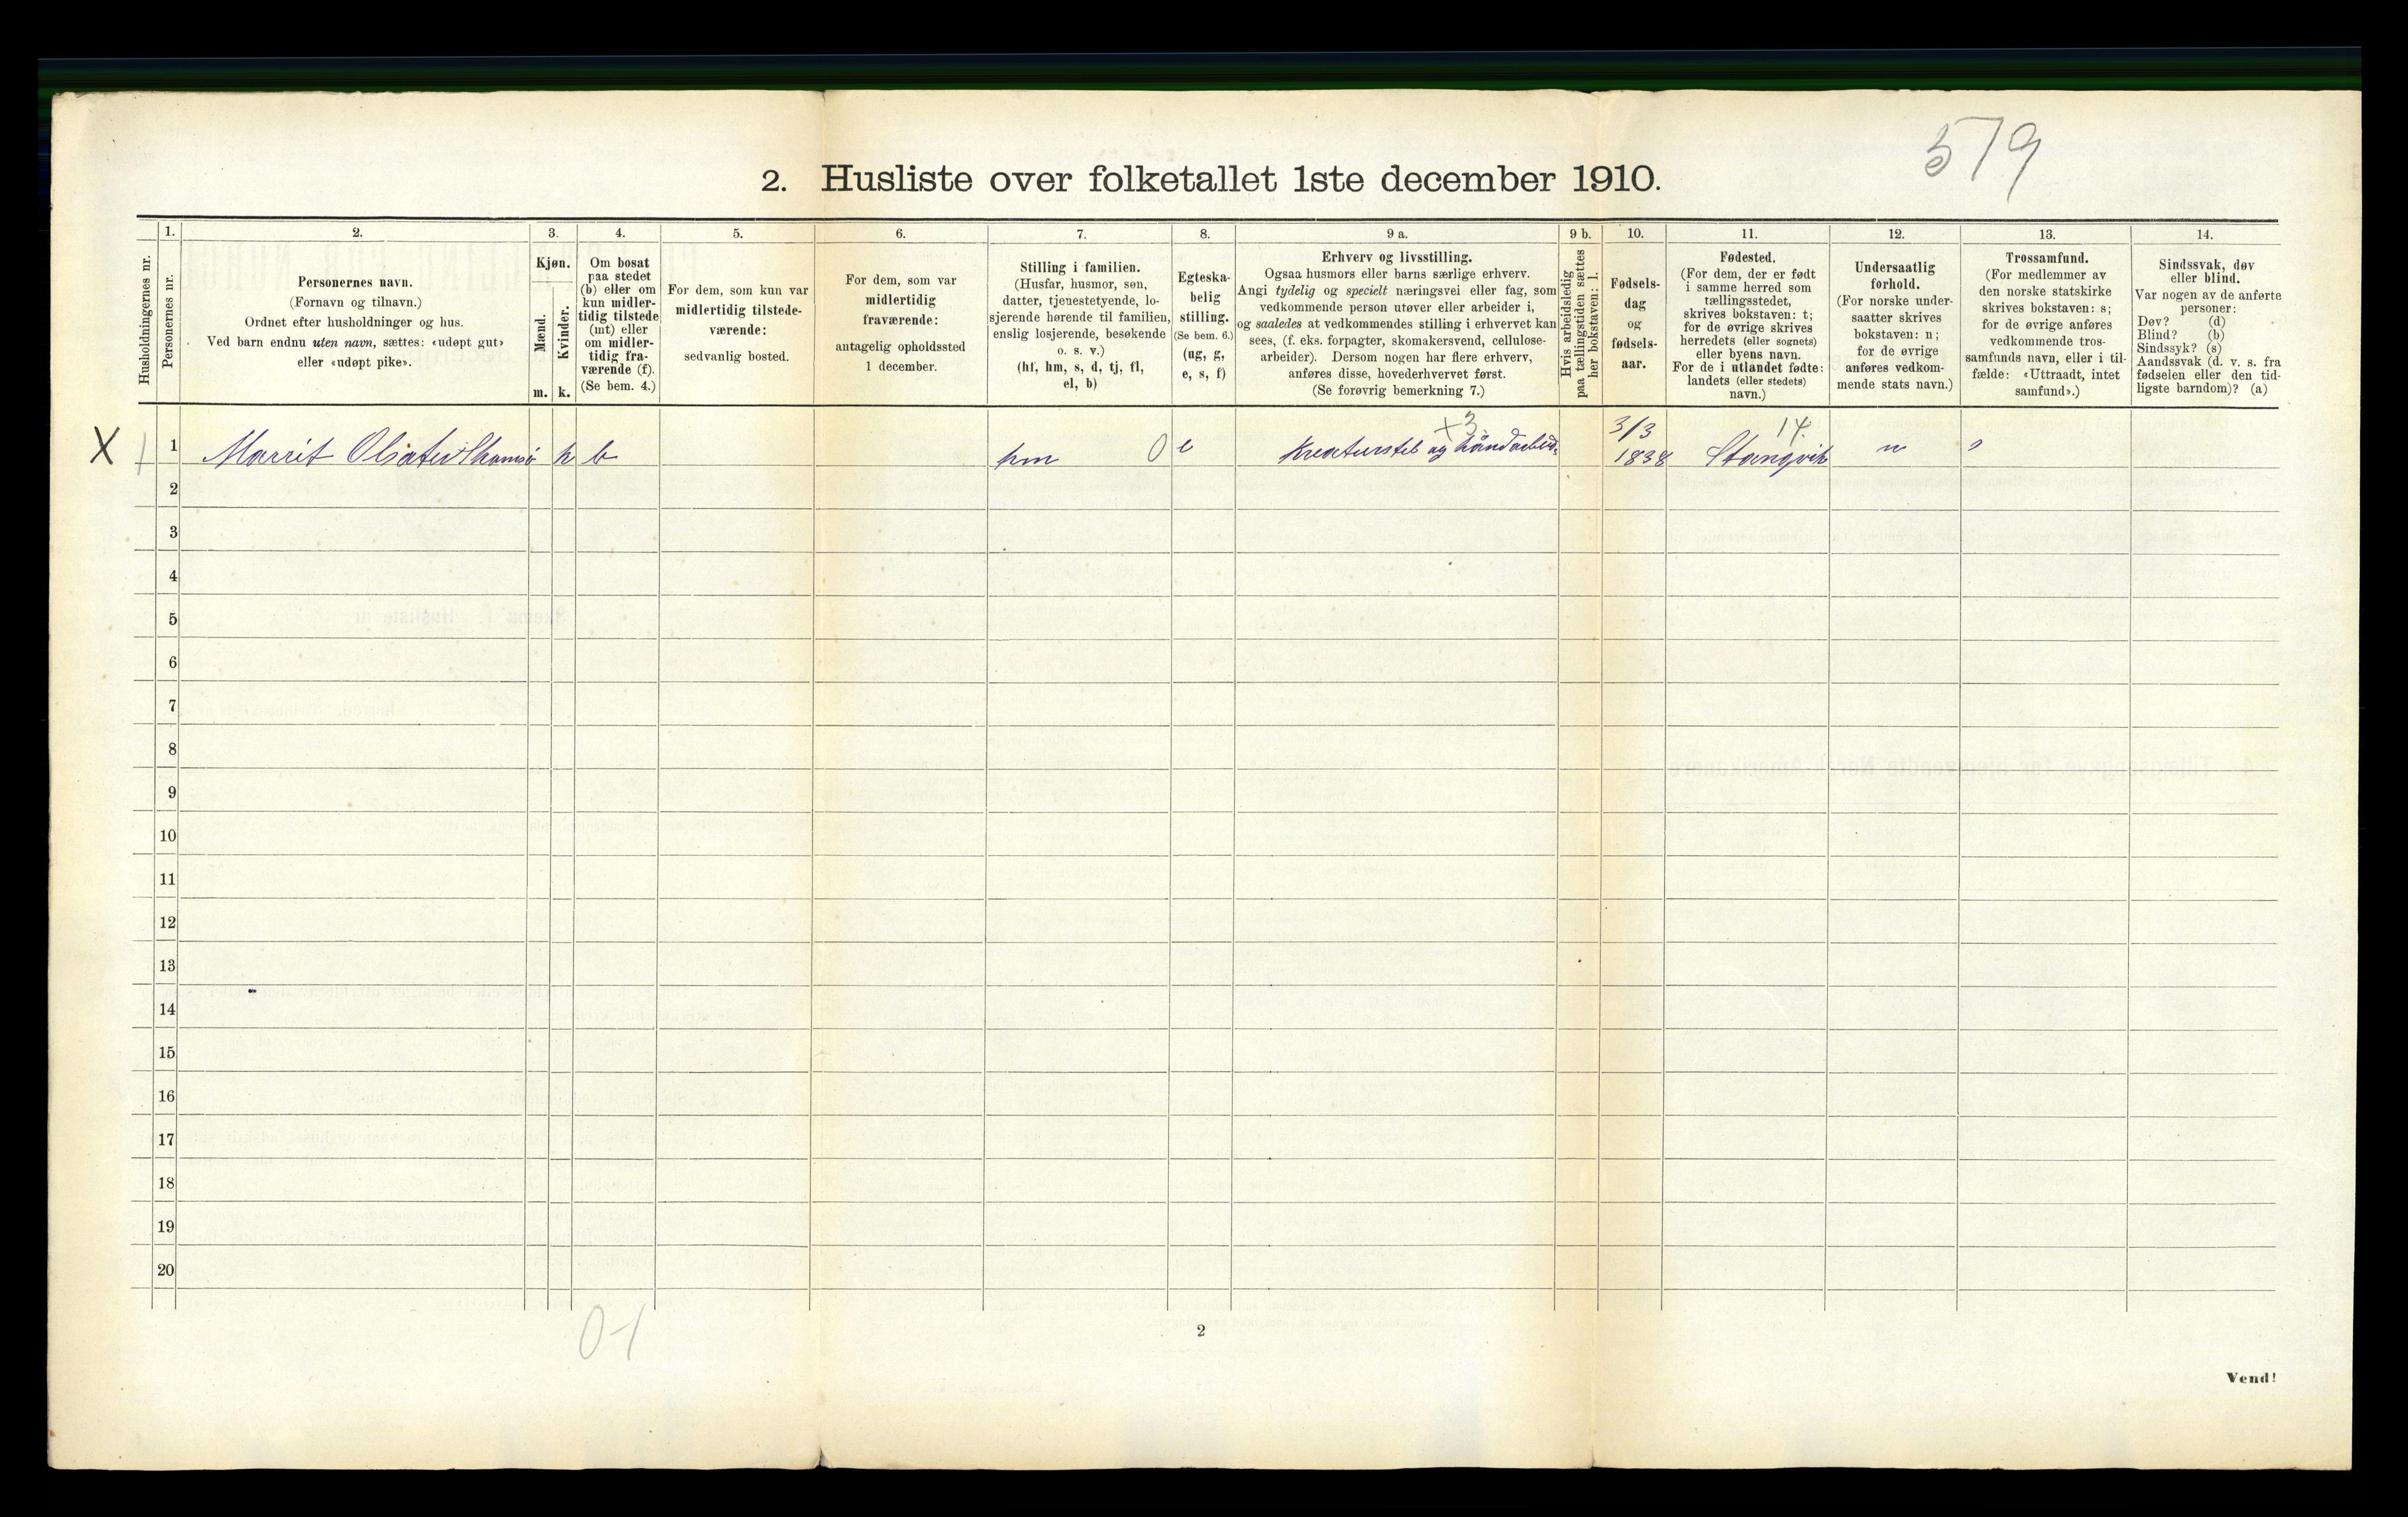 579
2. Husliste over folketallet 1ste december 1910.
Husholdningernes nr.
1.
Personernes nr.
2.
Personernes navn.
(Fornavn og tilnavn.)
Ordnet efter husholdninger og hus.
Ved barn endnu uten navn, sættes: «udøpt gut»
eller «udøpt pike».
3.
Kjøn.
Mænd.
Kvinder.
m. k.
4.
Om bosat
paa stedet
(b) eller om
kun midler-
tidig tilstede
(mt) eller
om midler-
tidig fra-
værende (f).
(Se bem. 4.)
5.
For dem, som kun var
midlertidig tilstede-
værende:
sedvanlig bosted.
6.
For dem, som var
midlertidig
fraværende:
antagelig opholdssted
1 december.
7.
Stilling i familien.
(Husfar, husmor, søn,
datter, tjenestetyende, lo-
sjerende hørende til familien,
enslig losjerende, besøkende
o. s. v.)
(hf, hm, s, d, tj, fl,
el, b)
8.
Egteska-
belig
stilling.
(Se bem. 6.)
(ug, g,
e, s, f)
9 a.
Erhverv og livsstilling.
Ogsaa husmors eller barns særlige erhverv.
Angi tydelig og specielt næringsvei eller fag, som
vedkommende person utøver eller arbeider i,
og saaledes at vedkommendes stilling i erhvervet kan
sees, (f. eks. forpagter, skomakersvend, cellulose-
arbeider). Dersom nogen har flere erhverv,
anføres disse, hovederhvervet først.
(Se forøvrig bemerkning 7.)
9 b.
Hvis arbeidsledig
paa tællingstiden sættes
her bokstaven: l.
10.
Fødsels-
dag
og
fødsels-
aar.
11.
Fødested.
(For dem, der er født
i samme herred som
tællingsstedet,
skrives bokstaven: t;
for de øvrige skrives
herredets (eller sognets)
eller byens navn.
For de i utlandet fødte:
landets (eller stedets)
navn.)
12.
Undersaatlig
forhold.
(For norske under-
saatter skrives
bokstaven: n;
for de øvrige
anføres vedkom-
mende stats navn.)
13.
Trossamfund.
(For medlemmer av
den norske statskirke
skrives bokstaven: s;
for de øvrige anføres
vedkommende tros-
samfunds navn, eller i til-
fælde: «Uttraadt, intet
samfund».)
14.
Sindssvak, døv
eller blind.
Var nogen av de anførte
personer:
Døv? (d)
Blind? (b)
Sindssyk? (s)
Aandssvak (d. v. s. fra
fødselen eller den tid-
ligste barndom)? (a)
+3. 3/3 14.
X 1 1 Marrit k b hm 0 e Kreaturstel og håndarbeid. 1838 Stangvik n s
2
3
4
5
6
7
8
9
10
11
12
13
14
15
16
17
18
19
20
0-1
2
Vend!